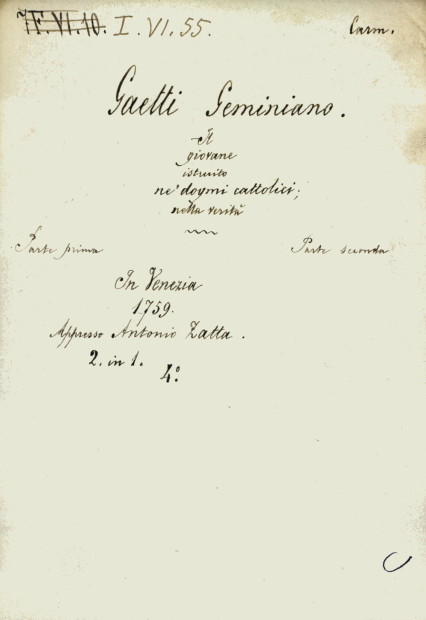 7F.VI.10. I.VI.55. Carm.
Gaetti Geminiano.
Il
giovane
istruito
ne' dogmi cattolici;
nella verità
Parte prima Parte seconda
In Venezia
1759.
Appresso Antonio Zatta.
2. in 1.
4º